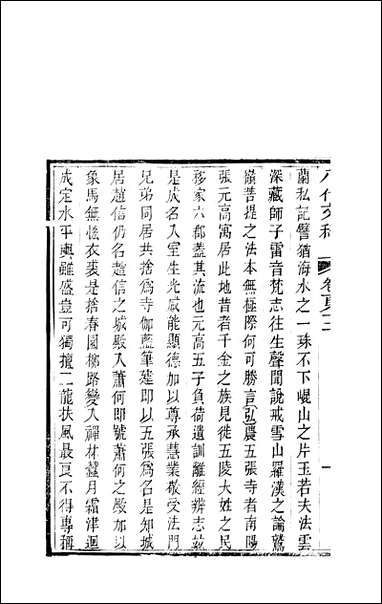 八代文粹 卷百二 一
蘭私記譬猶海水之一珠不下崐山之片玉若夫法雲
深藏師子雷音梵志往生聲聞說戒雪山羅漢之論鷲
嶺菩提之法本無極際何可勝言弘農五張寺者南陽
張元高寓居此地昔者千金之族見徙五陵大姓之民
移家六郡蓋其流也元高五子負荷遺訓離經辨志茲
是成名入室生光咸能顯德加以尊承慧業敬受法門
兄弟同居共捨爲寺伽藍肇建即以五張爲名是知城
居趙信仍名趙信之城殿入蕭何即號蕭何之殿加以
象馬無恡衣裘是捨春園柳路變入禪林蠶月霜津迴
成定水平輿雖盛豈可獨擅二龍扶風最良不得專稱